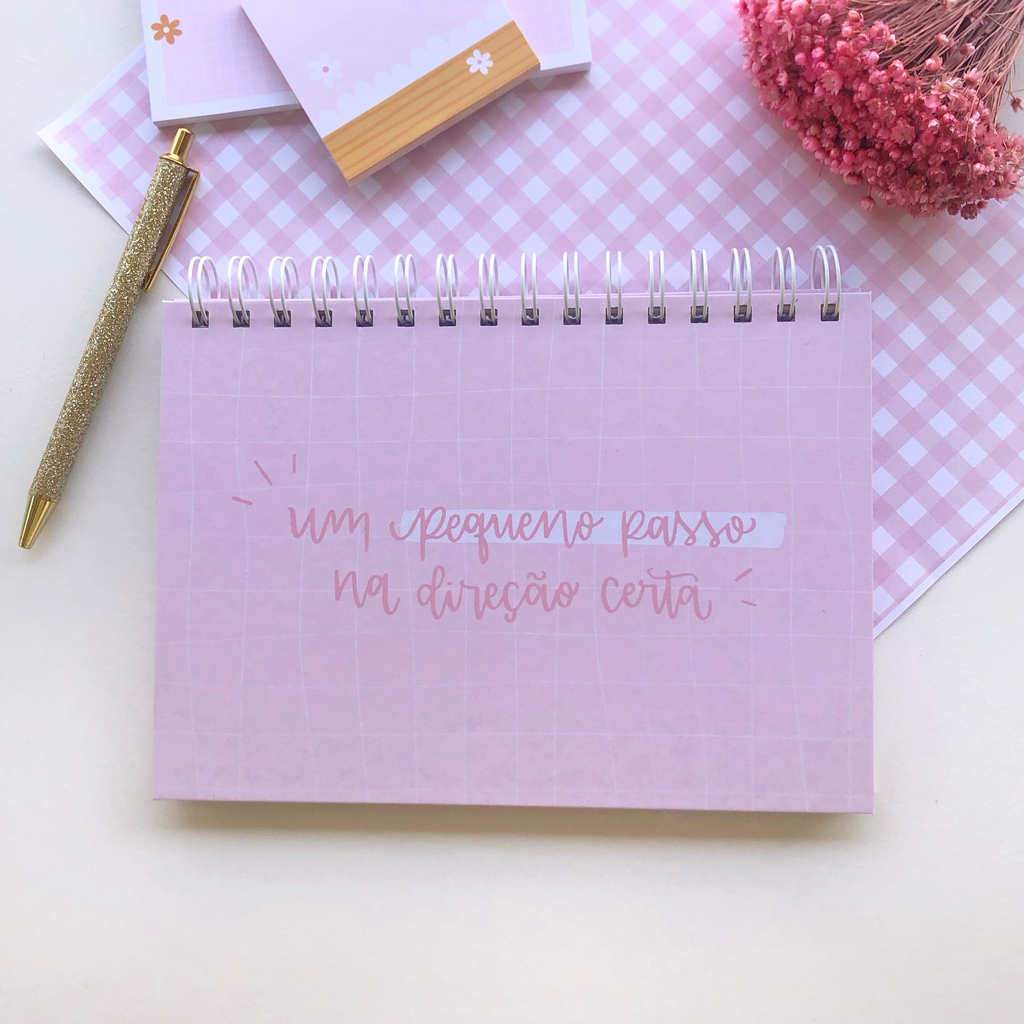 um pequeno passo
na direção certa